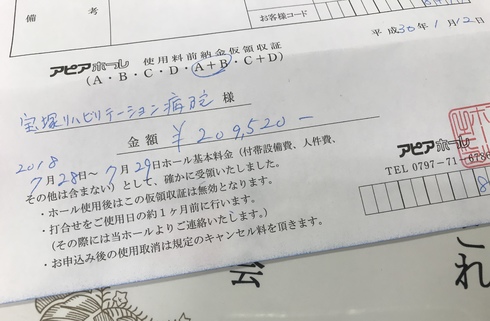 備 考
お客様コード
平成30年1月12日
アピアホール 使用料前納金仮領収証
(A・B・C・D・A+B・C+D)
宝塚リハビリテーション病院 様
金額 ¥209,520-
2018
7月28日〜7月29日ホール基本料金(付帯設備費、人件費、
その他は含まない)として、確かに受領いたしました。
・ホール使用後はこの仮領収証は無効となります。
・打合せをご使用日の約1ヶ月前に行います。
(その際には当ホールよりご連絡いたします。)
・お申込み後の使用取消は規定のキャンセル料を頂きます。
アピアホール
TEL 0797-71-6786
8
これ
会